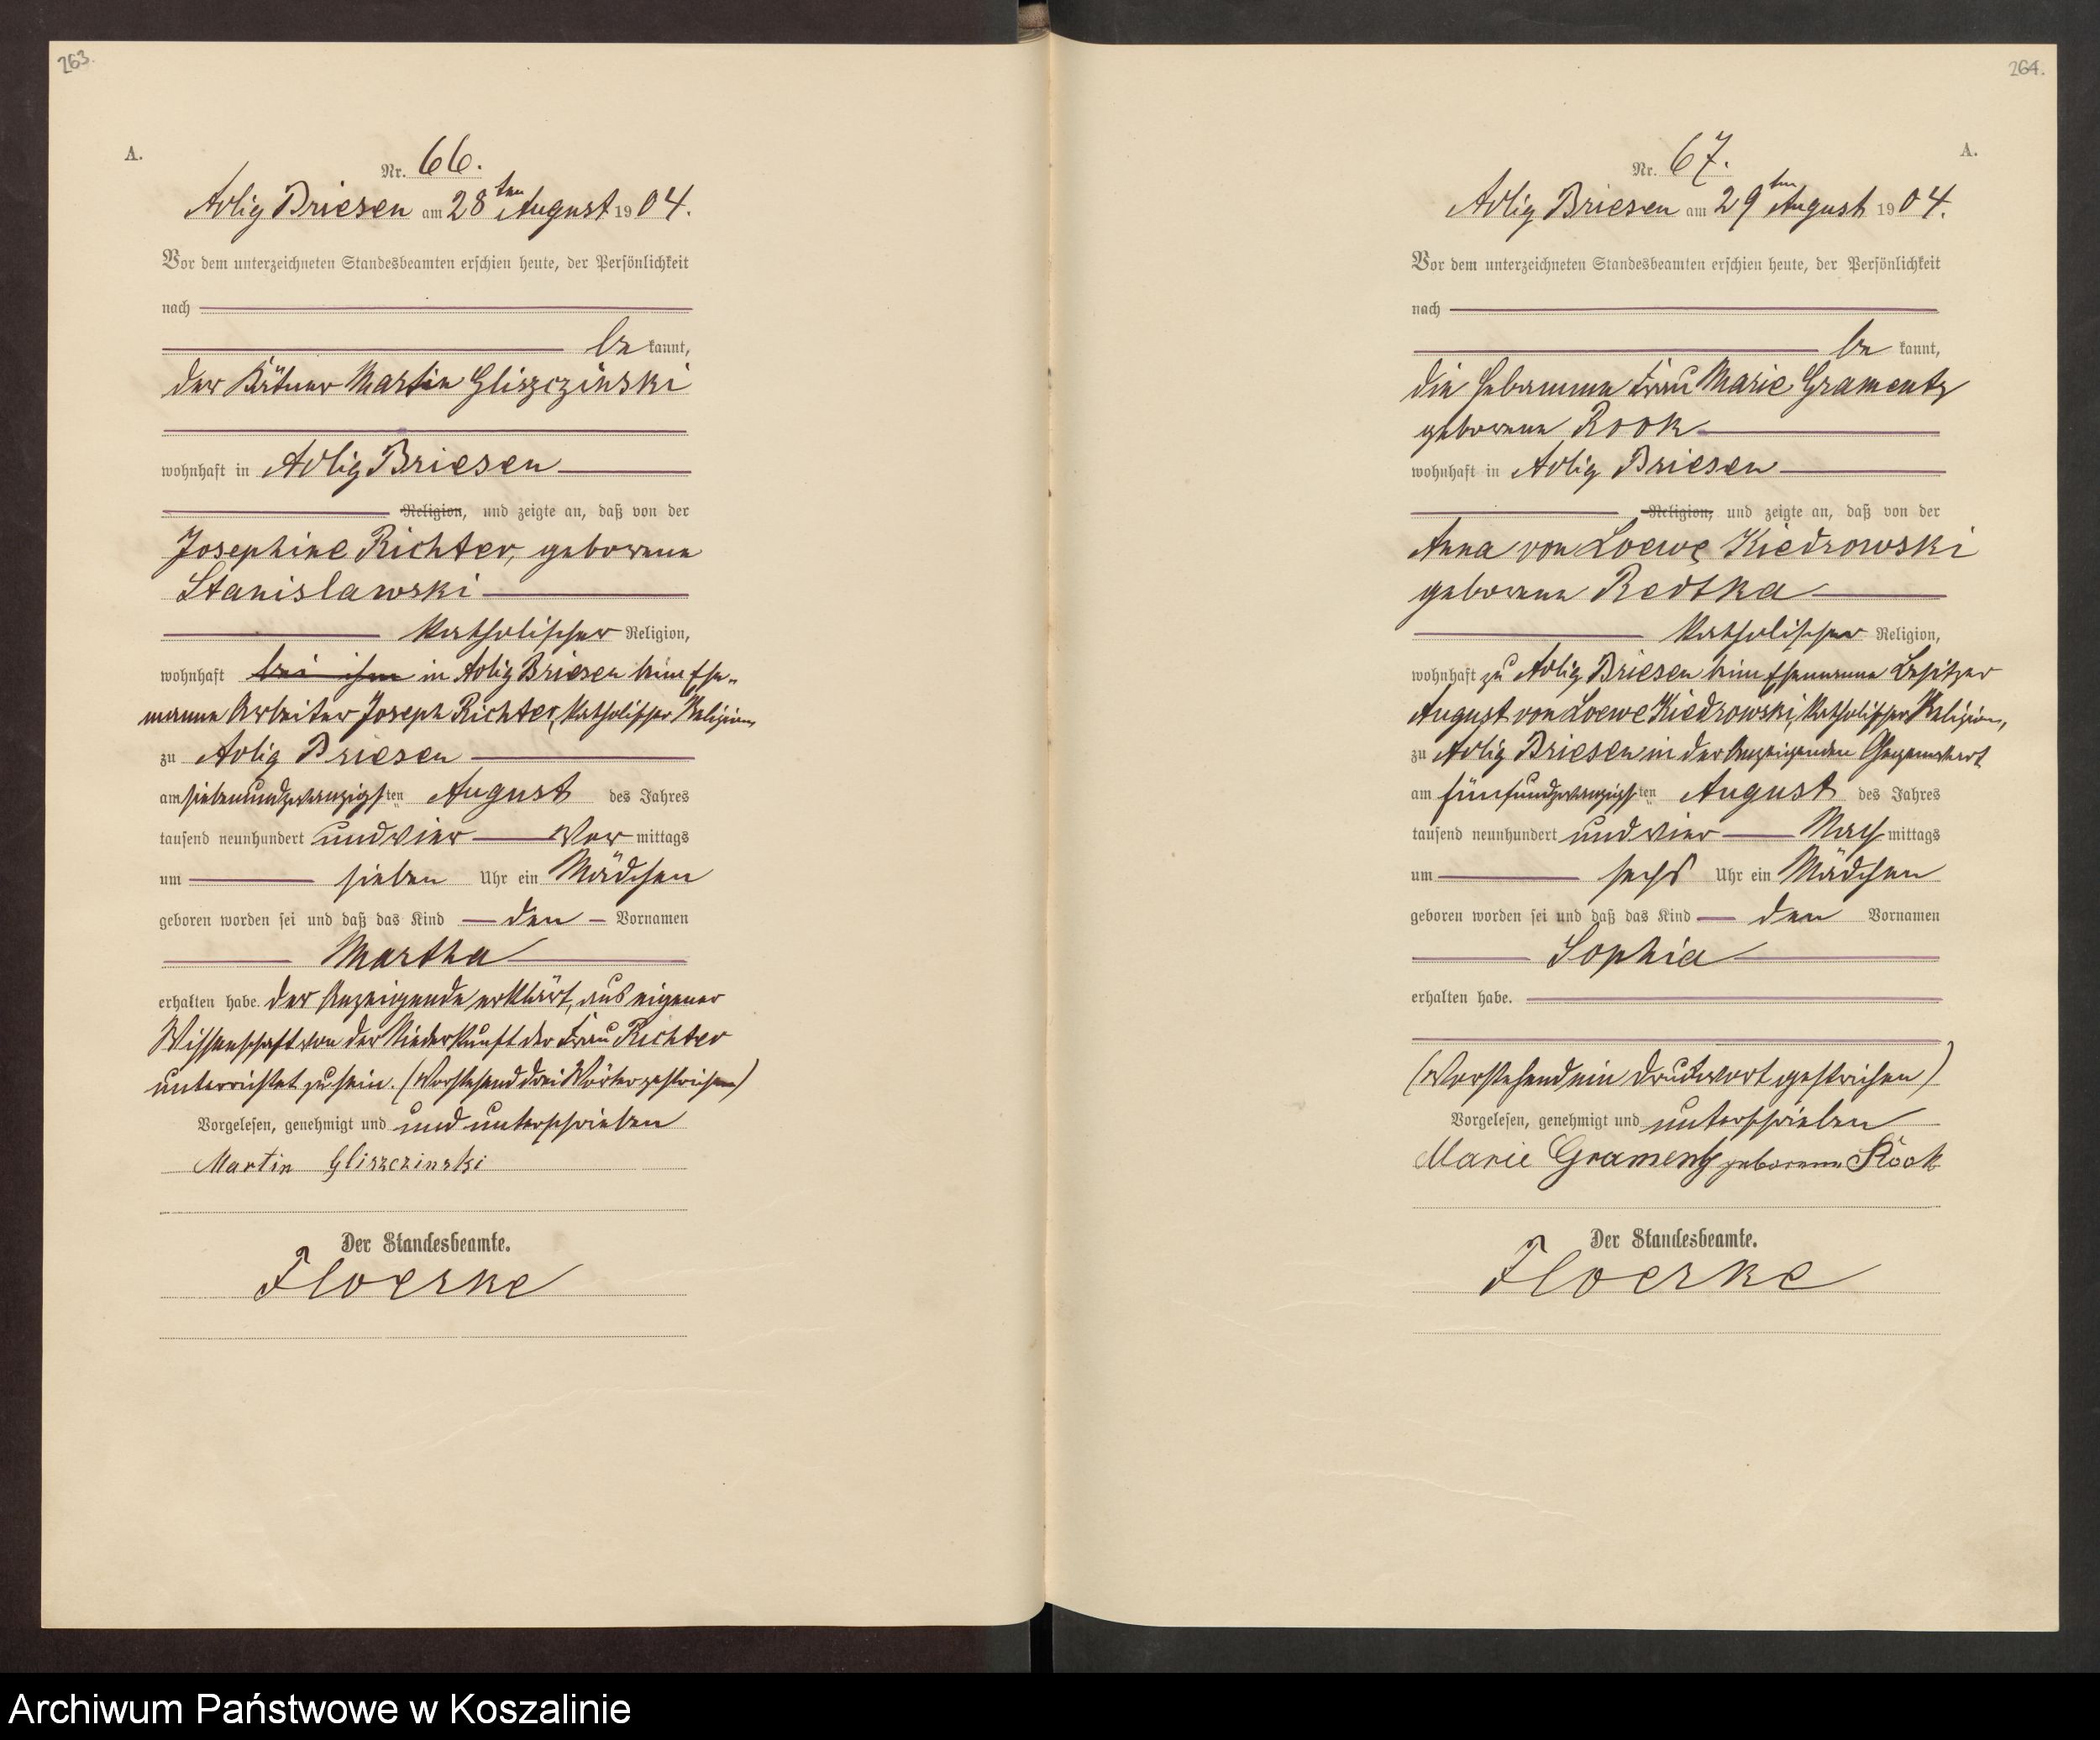 263.
A.
Nr. 66.
Adlig Briesen am 28ten August 1904.
Vor dem unterzeichneten Standesbeamten erschien heute, der Persönlichkeit
nach
be kannt,
der Kätner Martin Gliszczinski
wohnhaft in Adlig Briesen
Religion, und zeigte an, daß von der
Josephine Richter, geborene
Stanislawski
katholischer Religion,
wohnhaft bei ihm in Adlig Briesen beim Ehe-
manne Arbeiter Joseph Richter, katholischer Religion,
zu Adlig Briesen
am siebenundzwanzigsten August des Jahres
tausend neunhundert und vier Vor mittags
um sieben Uhr ein Mädchen
geboren worden sei und daß das Kind den Vornamen
Martha
erhalten habe. Der Anzeigende erklärt, aus eigener
Wissenschaft von der Niederkunft der Frau Richter
unterrichtet zu sein. (Vorstehend drei Wörter gestrichen)
Vorgelesen, genehmigt und und unterschrieben
Martin Gliszczinski
Der Standesbeamte.
Floerke
264.
A.
Nr. 67.
Adlig Briesen am 29ten August 1904.
Vor dem unterzeichneten Standesbeamten erschien heute, der Persönlichkeit
nach
be kannt,
die Hebamme Frau Marie Gramentz
geborene Rook
wohnhaft in Adlig Briesen
Religion, und zeigte an, daß von der
Anna von Loewe Kiedrowski
geborene Redtka
katholischer Religion,
wohnhaft zu Adlig Briesen beim Ehemanne Besitzer
August von Loewe Kiedrowski, katholischer Religion,
zu Adlig Briesen in der Anzeigenden Gegenwart
am fünfundzwanzigsten August des Jahres
tausend neunhundert und vier Nach mittags
um sechs Uhr ein Mädchen
geboren worden sei und daß das Kind den Vornamen
Sophia
erhalten habe.
(Vorstehend ein Druckwort gestrichen)
Vorgelesen, genehmigt und unterschrieben
Marie Gramentz geborene Rook
Der Standesbeamte.
Floerke
Archiwum Państwowe w Koszalinie